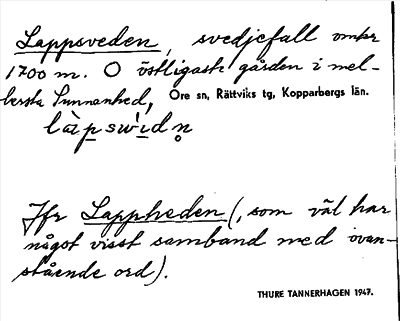 Lappsveden, svedjefall omkr
1700 m. O östligaste gården i mel-
lersta Sunnanhed, Ore sn, Rättviks tg, Kopparbergs län.
là̱p̱swì̱dn̥
Jfr Lappheden (, som väl har
något visst samband med ovan-
stående ord).
THURE TANNERHAGEN 1947.